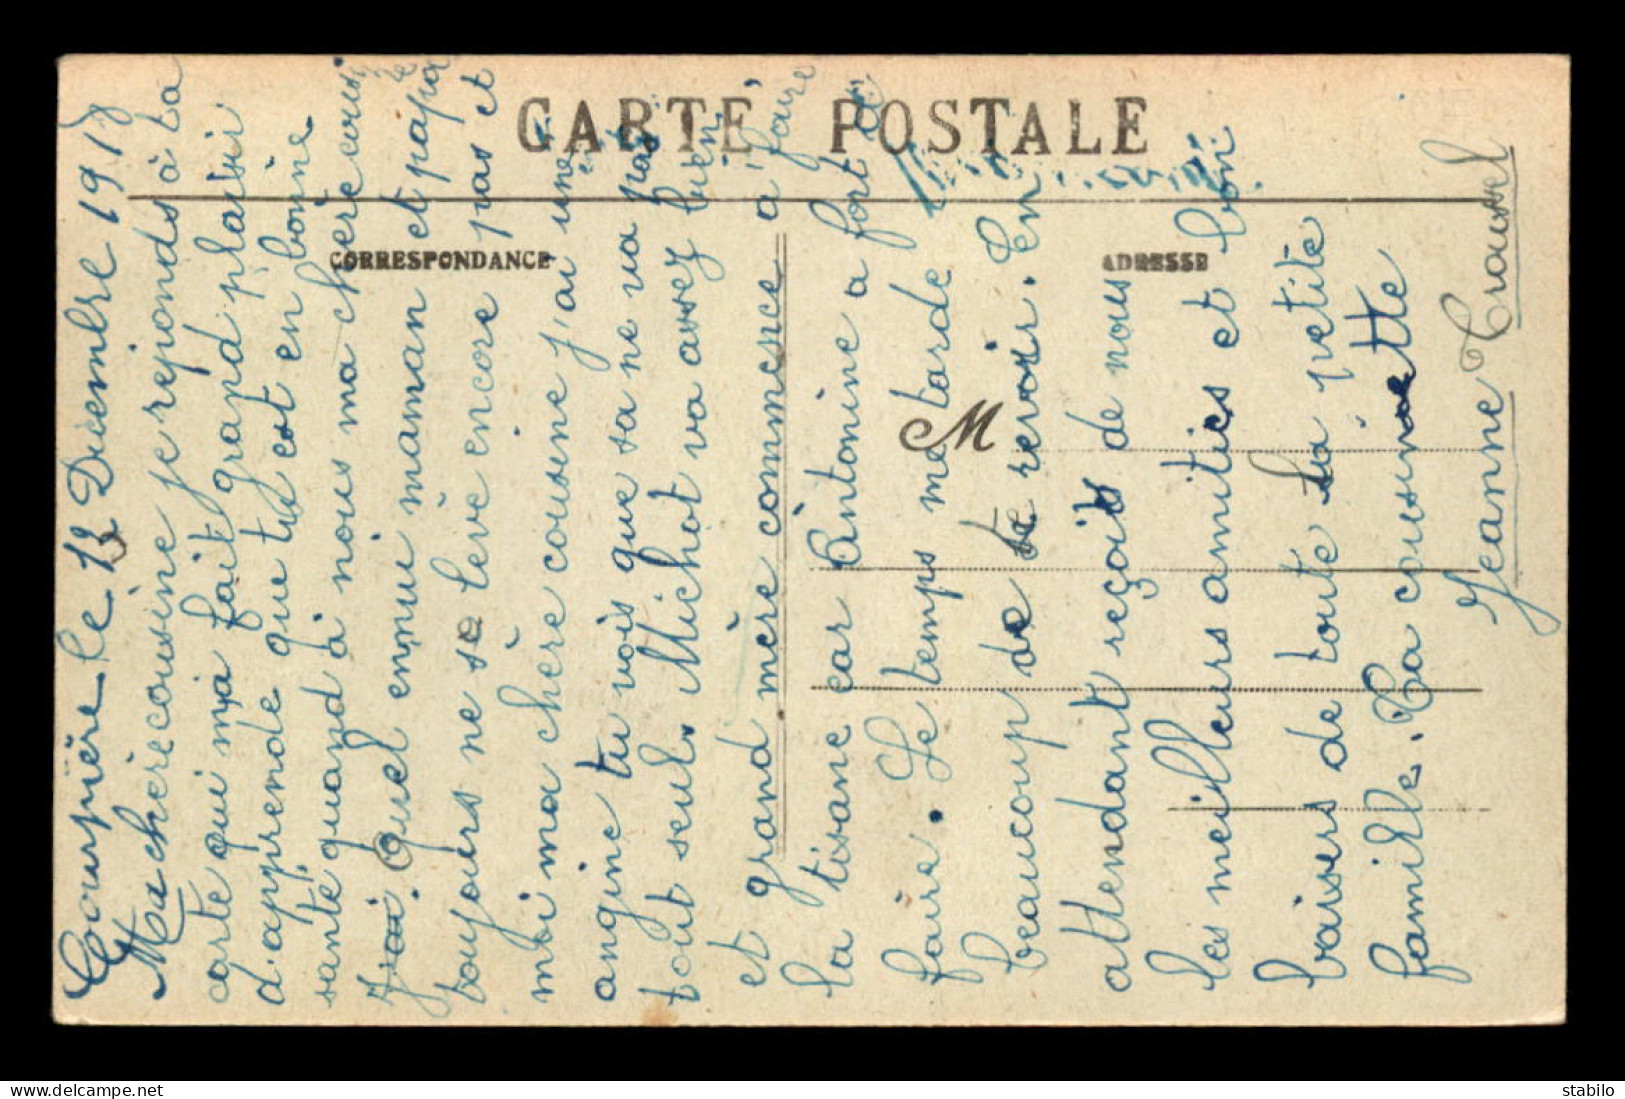 CARTE POSTALE
CORRESPONDANCE
ADRESSE
M
Courpière le 13 Décembre 1918
Ma chère cousine je reponds à ta
carte qui m'a fait grand plaisir
d'apprende que tu est en bonne
santé quand à nous ma chère cousi
J'ai. Quel ennui maman et papa
toujours ne se lève encore pas et
moi ma chère cousine j'ai une
angine tu vois que sa ne va pas
tout seul. Michot va assez bien
et grand mère commence à faire
la tisane car Antonine a fort à
faire. Le temps me tarde
beaucoup de te revoir. En
attendant reçoit de nous
les meilleurs amities et bon
baisers de toute ta petite
famille. Ta cousinette
Jeanne Troussel
stabilo